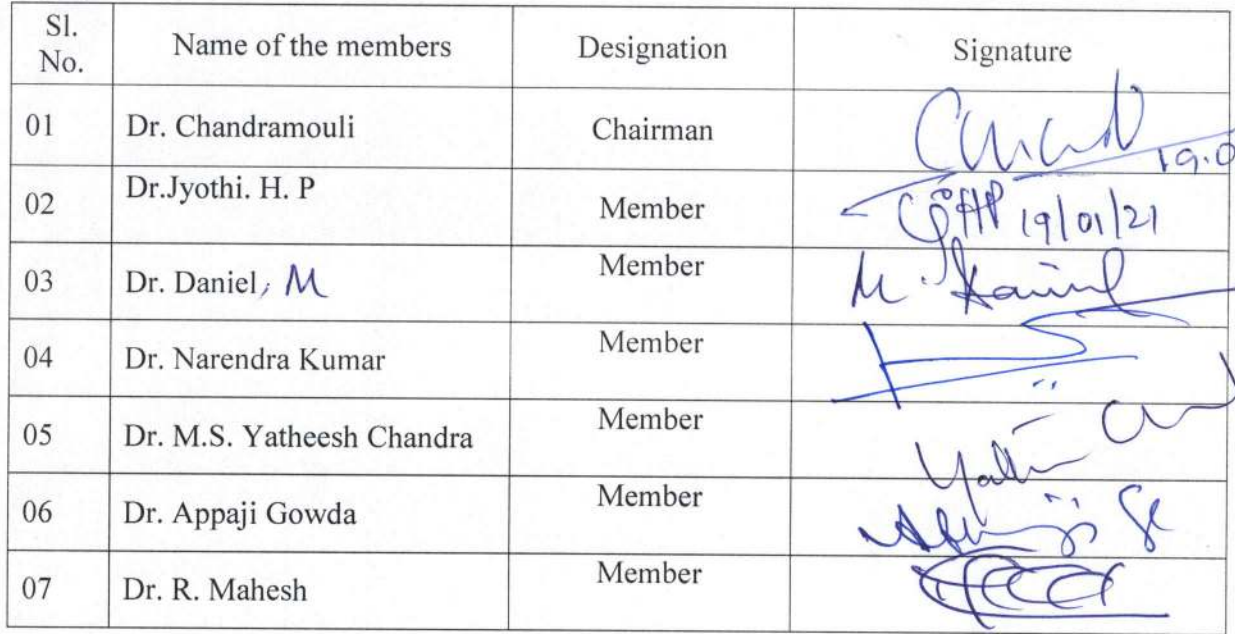 Sl. No. Name of the members Designation Signature
01 Dr. Chandramouli Chairman 19.0
02 Dr.Jyothi. H. P Member 19/01/21
03 Dr. Daniel, M Member M. Daniel
04 Dr. Narendra Kumar Member
05 Dr. M.S. Yatheesh Chandra Member
06 Dr. Appaji Gowda Member
07 Dr. R. Mahesh Member